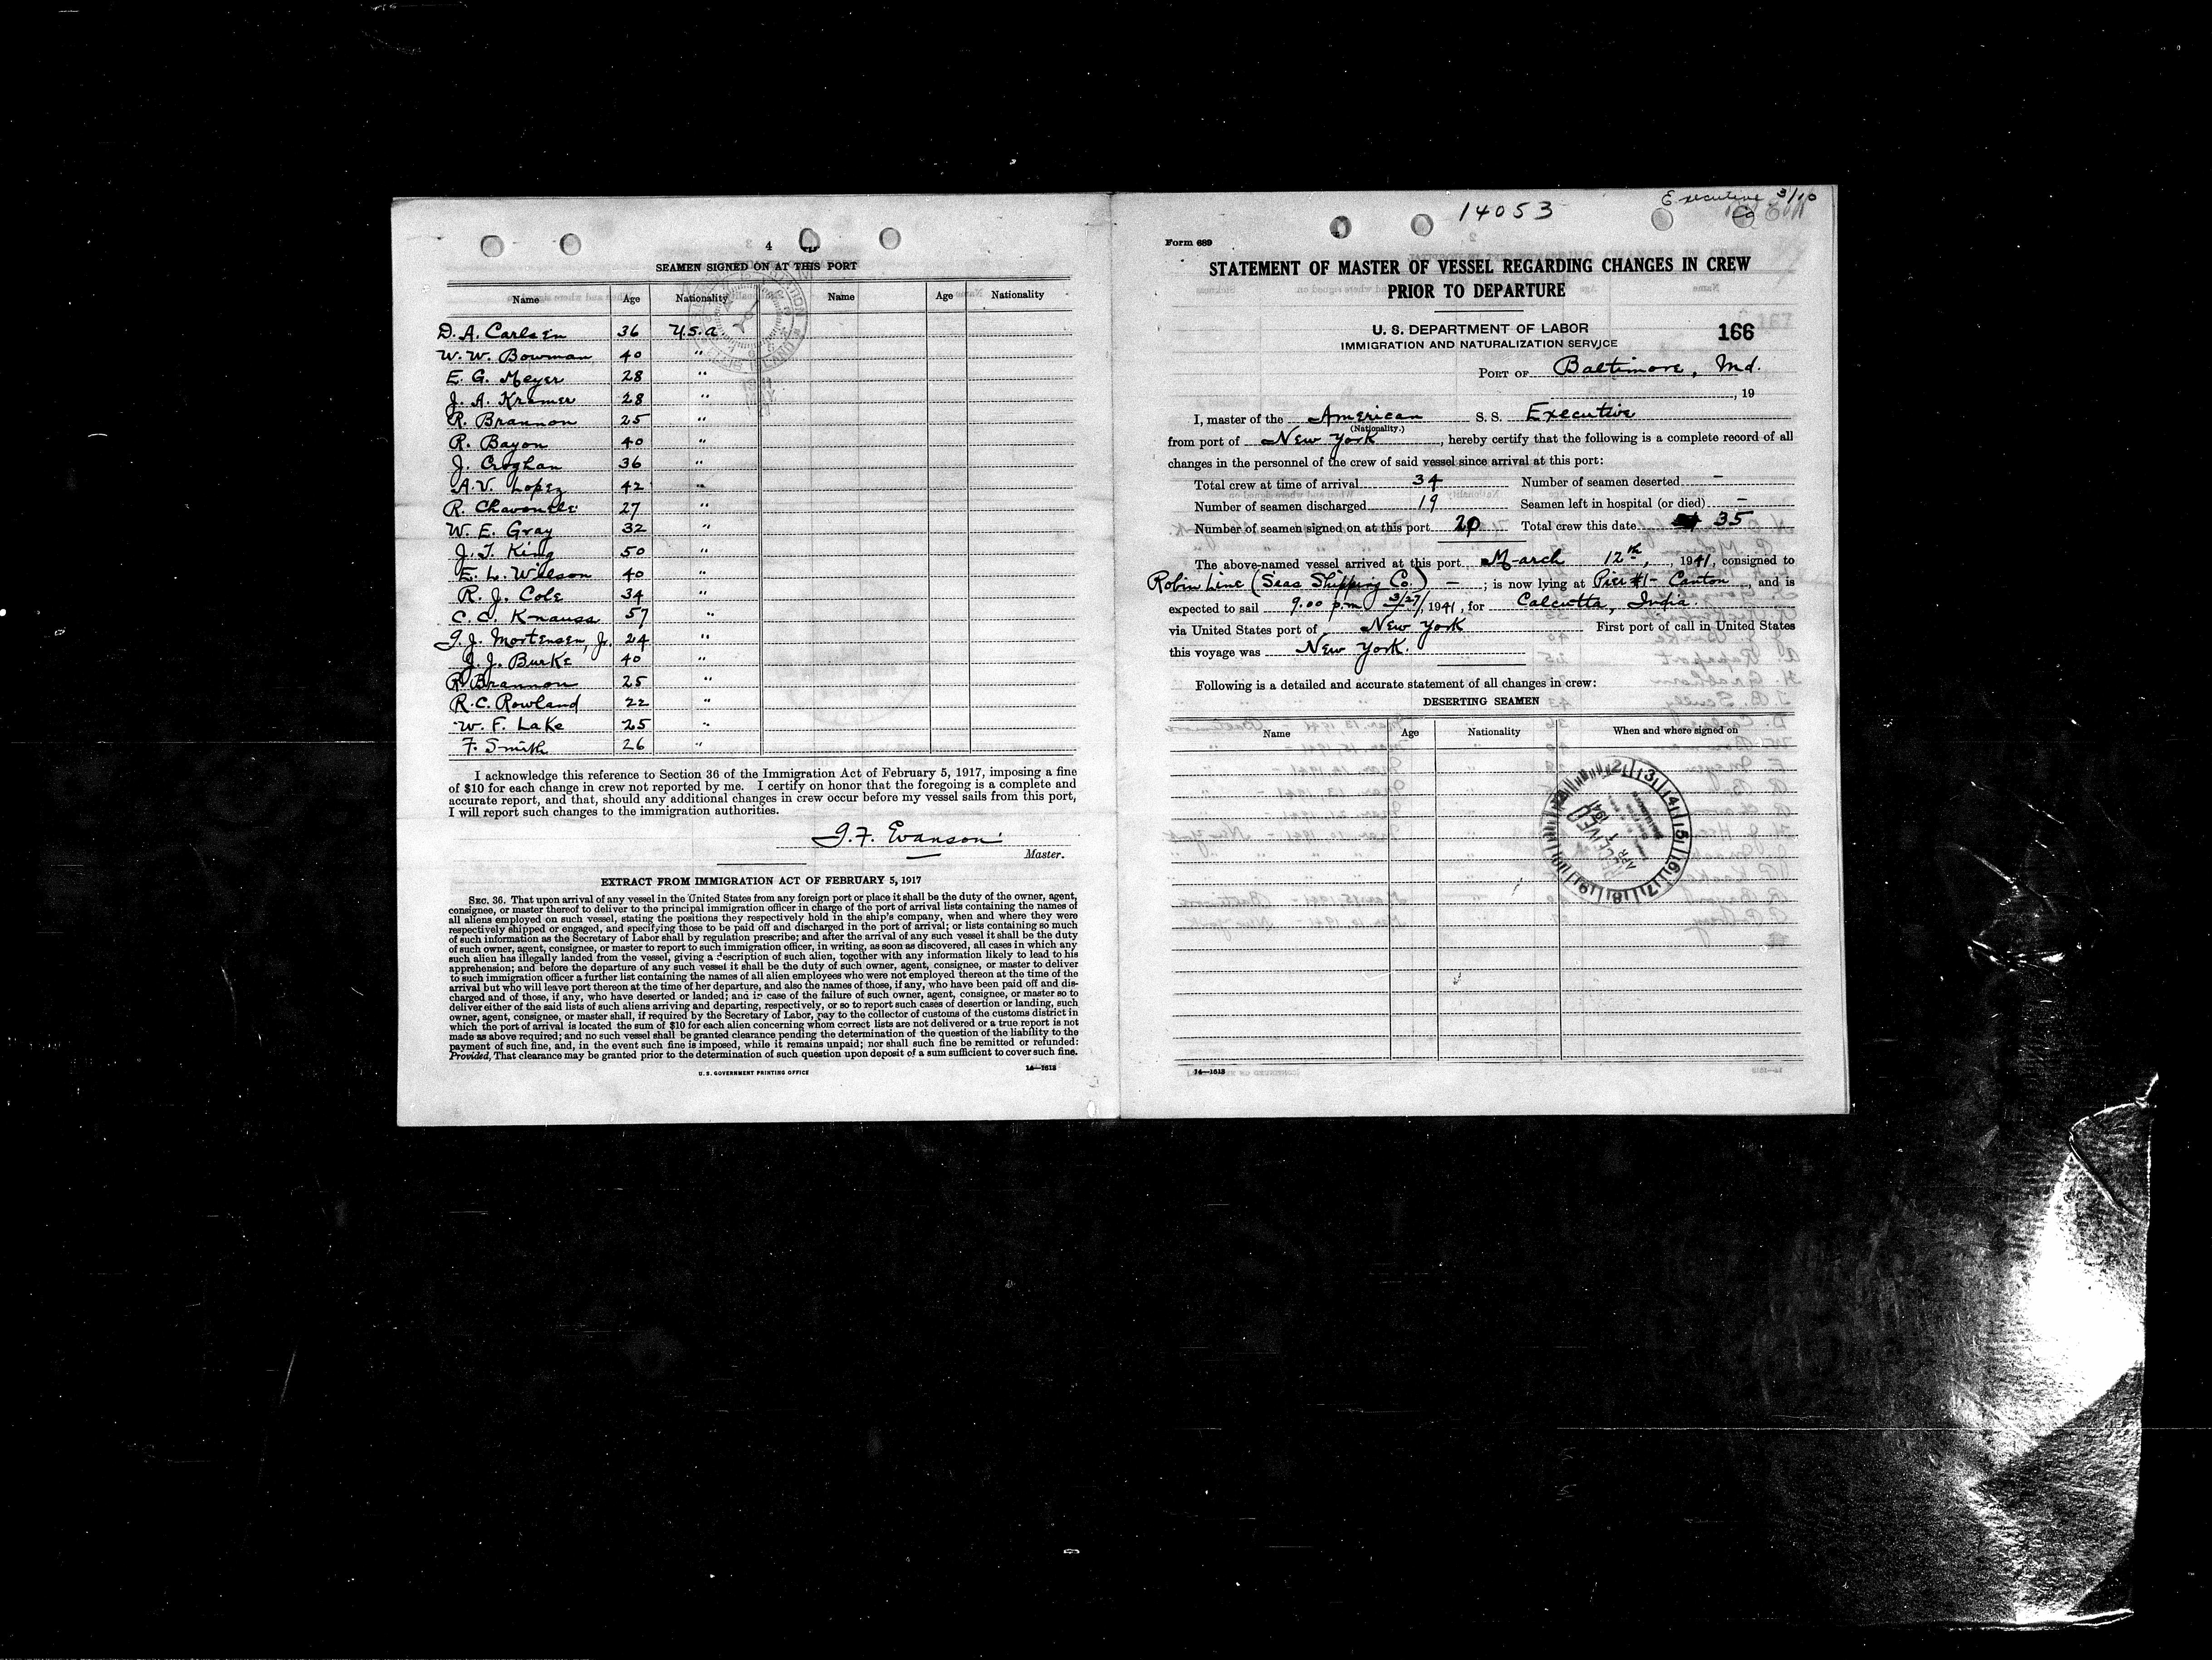 4
SEAMEN SIGNED ON AT THIS PORT
Name Age Nationality Name Age Nationality
D. A. Carlsen 36 U.S.a.
W. W. Bowman 40 "
E. G. Meyer 28 "
J. A. Kramer 28 "
R. Brannon 25 "
R. Bayon 40 "
J. Croghan 36 "
A. V. Lopez 42 "
R. 27 "
W. E. Gray 32 "
J. T. King 50 "
E. L. Wilson 40 "
R. J. Cole 34 "
C. C. Knauss 57 "
G. J. Mortensen, Jr. 24 "
J. J. Burke 40 "
R. Brannon 25 "
R. C. Rowland 22 "
W. F. Lake 25 "
F. Smith 26 "
I acknowledge this reference to Section 36 of the Immigration Act of February 5, 1917, imposing a fine
of $10 for each change in crew not reported by me. I certify on honor that the foregoing is a complete and
accurate report, and that, should any additional changes in crew occur before my vessel sails from this port,
I will report such changes to the immigration authorities.
G. F. Evanson
Master.
EXTRACT FROM IMMIGRATION ACT OF FEBRUARY 5, 1917
SEC. 36. That upon arrival of any vessel in the United States from any foreign port or place it shall be the duty of the owner, agent,
consignee, or master thereof to deliver to the principal immigration officer in charge of the port of arrival lists containing the names of
all aliens employed on such vessel, stating the positions they respectively hold in the ship's company, when and where they were
respectively shipped or engaged, and specifying those to be paid off and discharged in the port of arrival; or lists containing so much
of such information as the Secretary of Labor shall by regulation prescribe; and after the arrival of any such vessel it shall be the duty
of such owner, agent, consignee, or master to report to such immigration officer, in writing, as soon as discovered, all cases in which any
such alien has illegally landed from the vessel, giving a description of such alien, together with any information likely to lead to his
apprehension; and before the departure of any such vessel it shall be the duty of such owner, agent, consignee, or master to deliver
to such immigration officer a further list containing the names of all alien employees who were not employed thereon at the time of the
arrival but who will leave port thereon at the time of her departure, and also the names of those, if any, who have been paid off and dis-
charged and of those, if any, who have deserted or landed; and in case of the failure of such owner, agent, consignee, or master so to
deliver either of the said lists of such aliens arriving and departing, respectively, or so to report such cases of desertion or landing, such
owner, agent, consignee, or master shall, if required by the Secretary of Labor, pay to the collector of customs of the customs district in
which the port of arrival is located the sum of $10 for each alien concerning whom correct lists are not delivered or a true report is not
made as above required; and no such vessel shall be granted clearance pending the determination of the question of the liability to the
payment of such fine, and, in the event such fine is imposed, while it remains unpaid; nor shall such fine be remitted or refunded:
Provided, That clearance may be granted prior to the determination of such question upon deposit of a sum sufficient to cover such fine.
U. S. GOVERNMENT PRINTING OFFICE 14—1613
Executive 3/10
14053
Form 689
STATEMENT OF MASTER OF VESSEL REGARDING CHANGES IN CREW
PRIOR TO DEPARTURE
U. S. DEPARTMENT OF LABOR
IMMIGRATION AND NATURALIZATION SERVICE
166
PORT OF Baltimore, Md.
, 19
I, master of the American S. S. Executive
(Nationality.)
from port of New York, hereby certify that the following is a complete record of all
changes in the personnel of the crew of said vessel since arrival at this port:
Total crew at time of arrival 34 Number of seamen deserted –
Number of seamen discharged 19 Seamen left in hospital (or died) –
Number of seamen signed on at this port 20 Total crew this date 35
The above-named vessel arrived at this port March 12th, 1941, consigned to
Robin Line (Seas Shipping Co.) – ; is now lying at Pier #1 - Canton, and is
expected to sail 9.00 p.m 3/27, 1941, for Calcutta, India.
via United States port of New York First port of call in United States
this voyage was New York.
Following is a detailed and accurate statement of all changes in crew:
DESERTING SEAMEN
Name Age Nationality When and where signed on
RECEIVED
APR 1 1941
14—1613